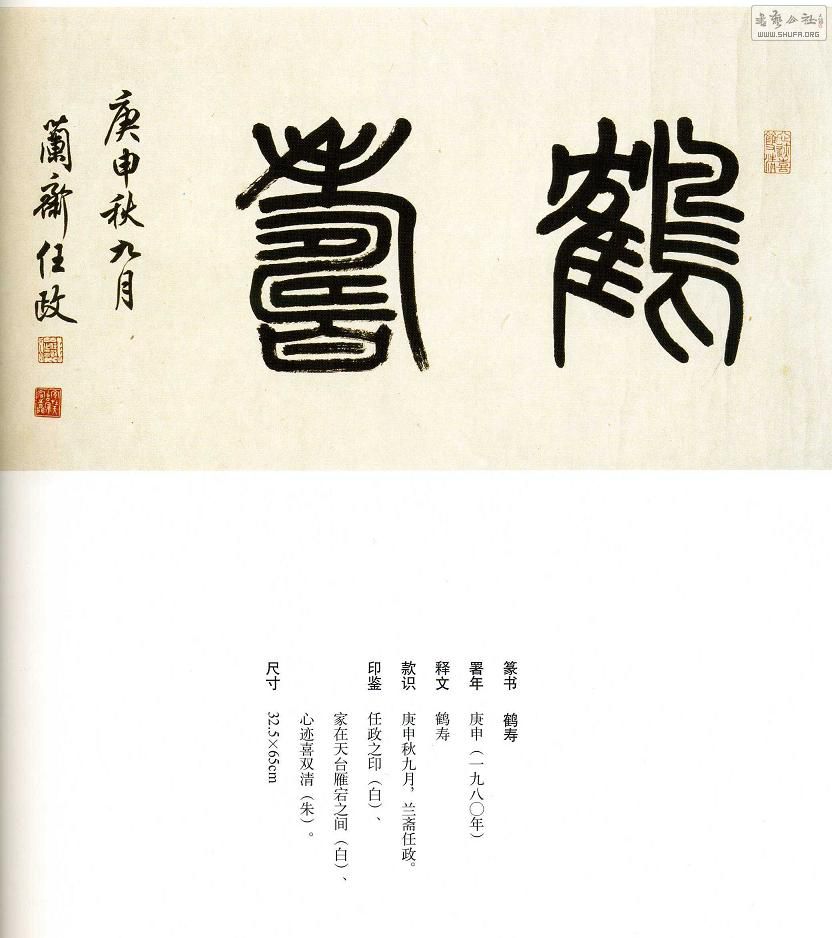 鶴壽
庚申秋九月
蘭齋任政
心迹喜雙清
篆书 鹤寿
署年 庚申（一九八〇年）
释文 鹤寿
款识 庚申秋九月，兰斋任政。
印鉴 任政之印（白）、
家在天台雁宕之间（白）、
心迹喜双清（朱）。
尺寸 32.5×65cm
书艺公社
WWW.SHUFA.ORG